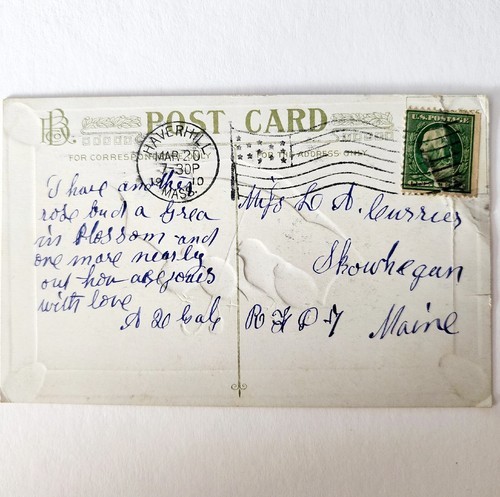 POST CARD
FOR CORRESPONDENCE ONLY
FOR THE ADDRESS ONLY
HAVERHILL
MAR 20
7-30P
1910
MASS.
U.S. POSTAGE
I have another
rose bud a Grea
in Blossom and
one more nearly
out how are yours
with love
A D Gale
Miss L A. Currier
Skowhegan
R F D 7
Maine